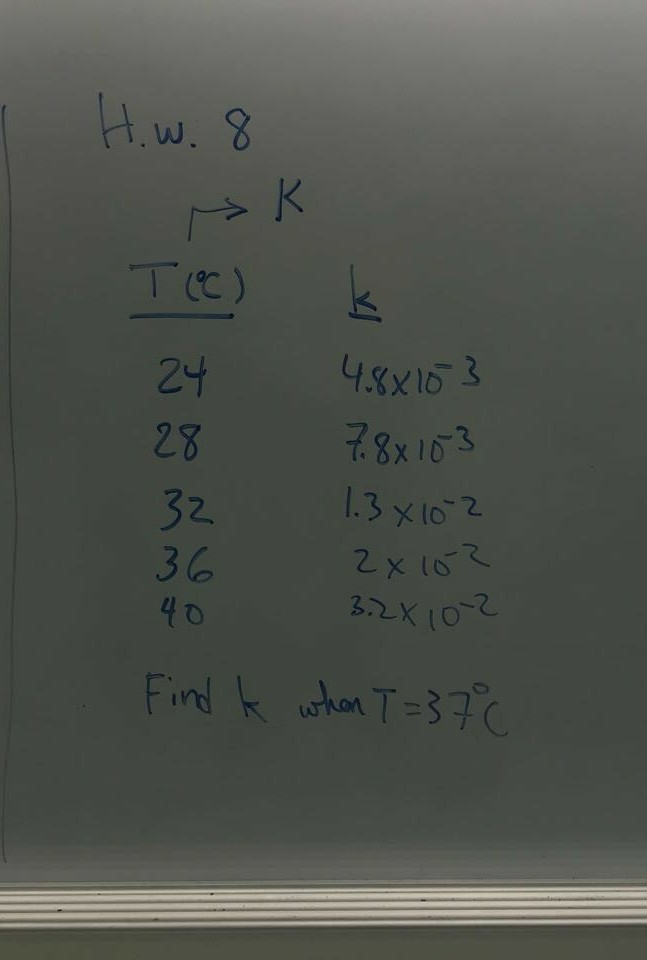 H.W. 8
→ K
T(°C) k
24 4.8x10-3
28 7.8x10-3
32 1.3x10-2
36 2x10-2
40 3.2x10-2
Find k when T=37°C